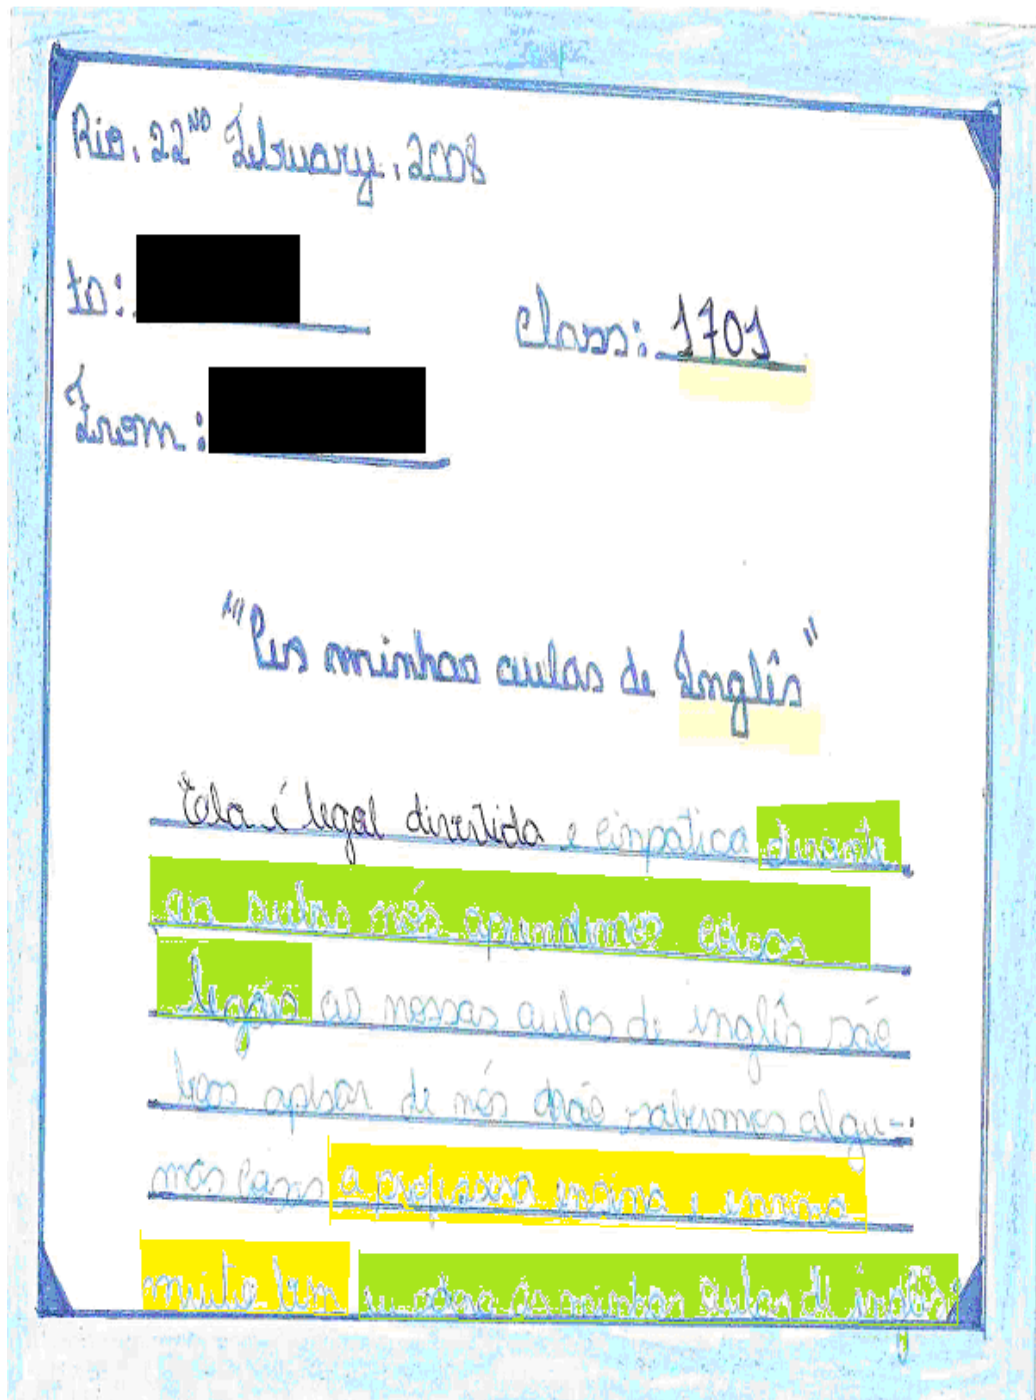 Rio, 22ND February, 2008
to:
Class: 1701
From:
"As minhas aulas de Inglês"
Ela é legal divertida e cinpatica durante
as aulas nós aprendemos coisas
legais as nossas aulas de inglês são
boas apesar de nós não sabermos algu-
mas coisas a professora encina e encina
muito bem eu adoro as minhas aulas de inglês